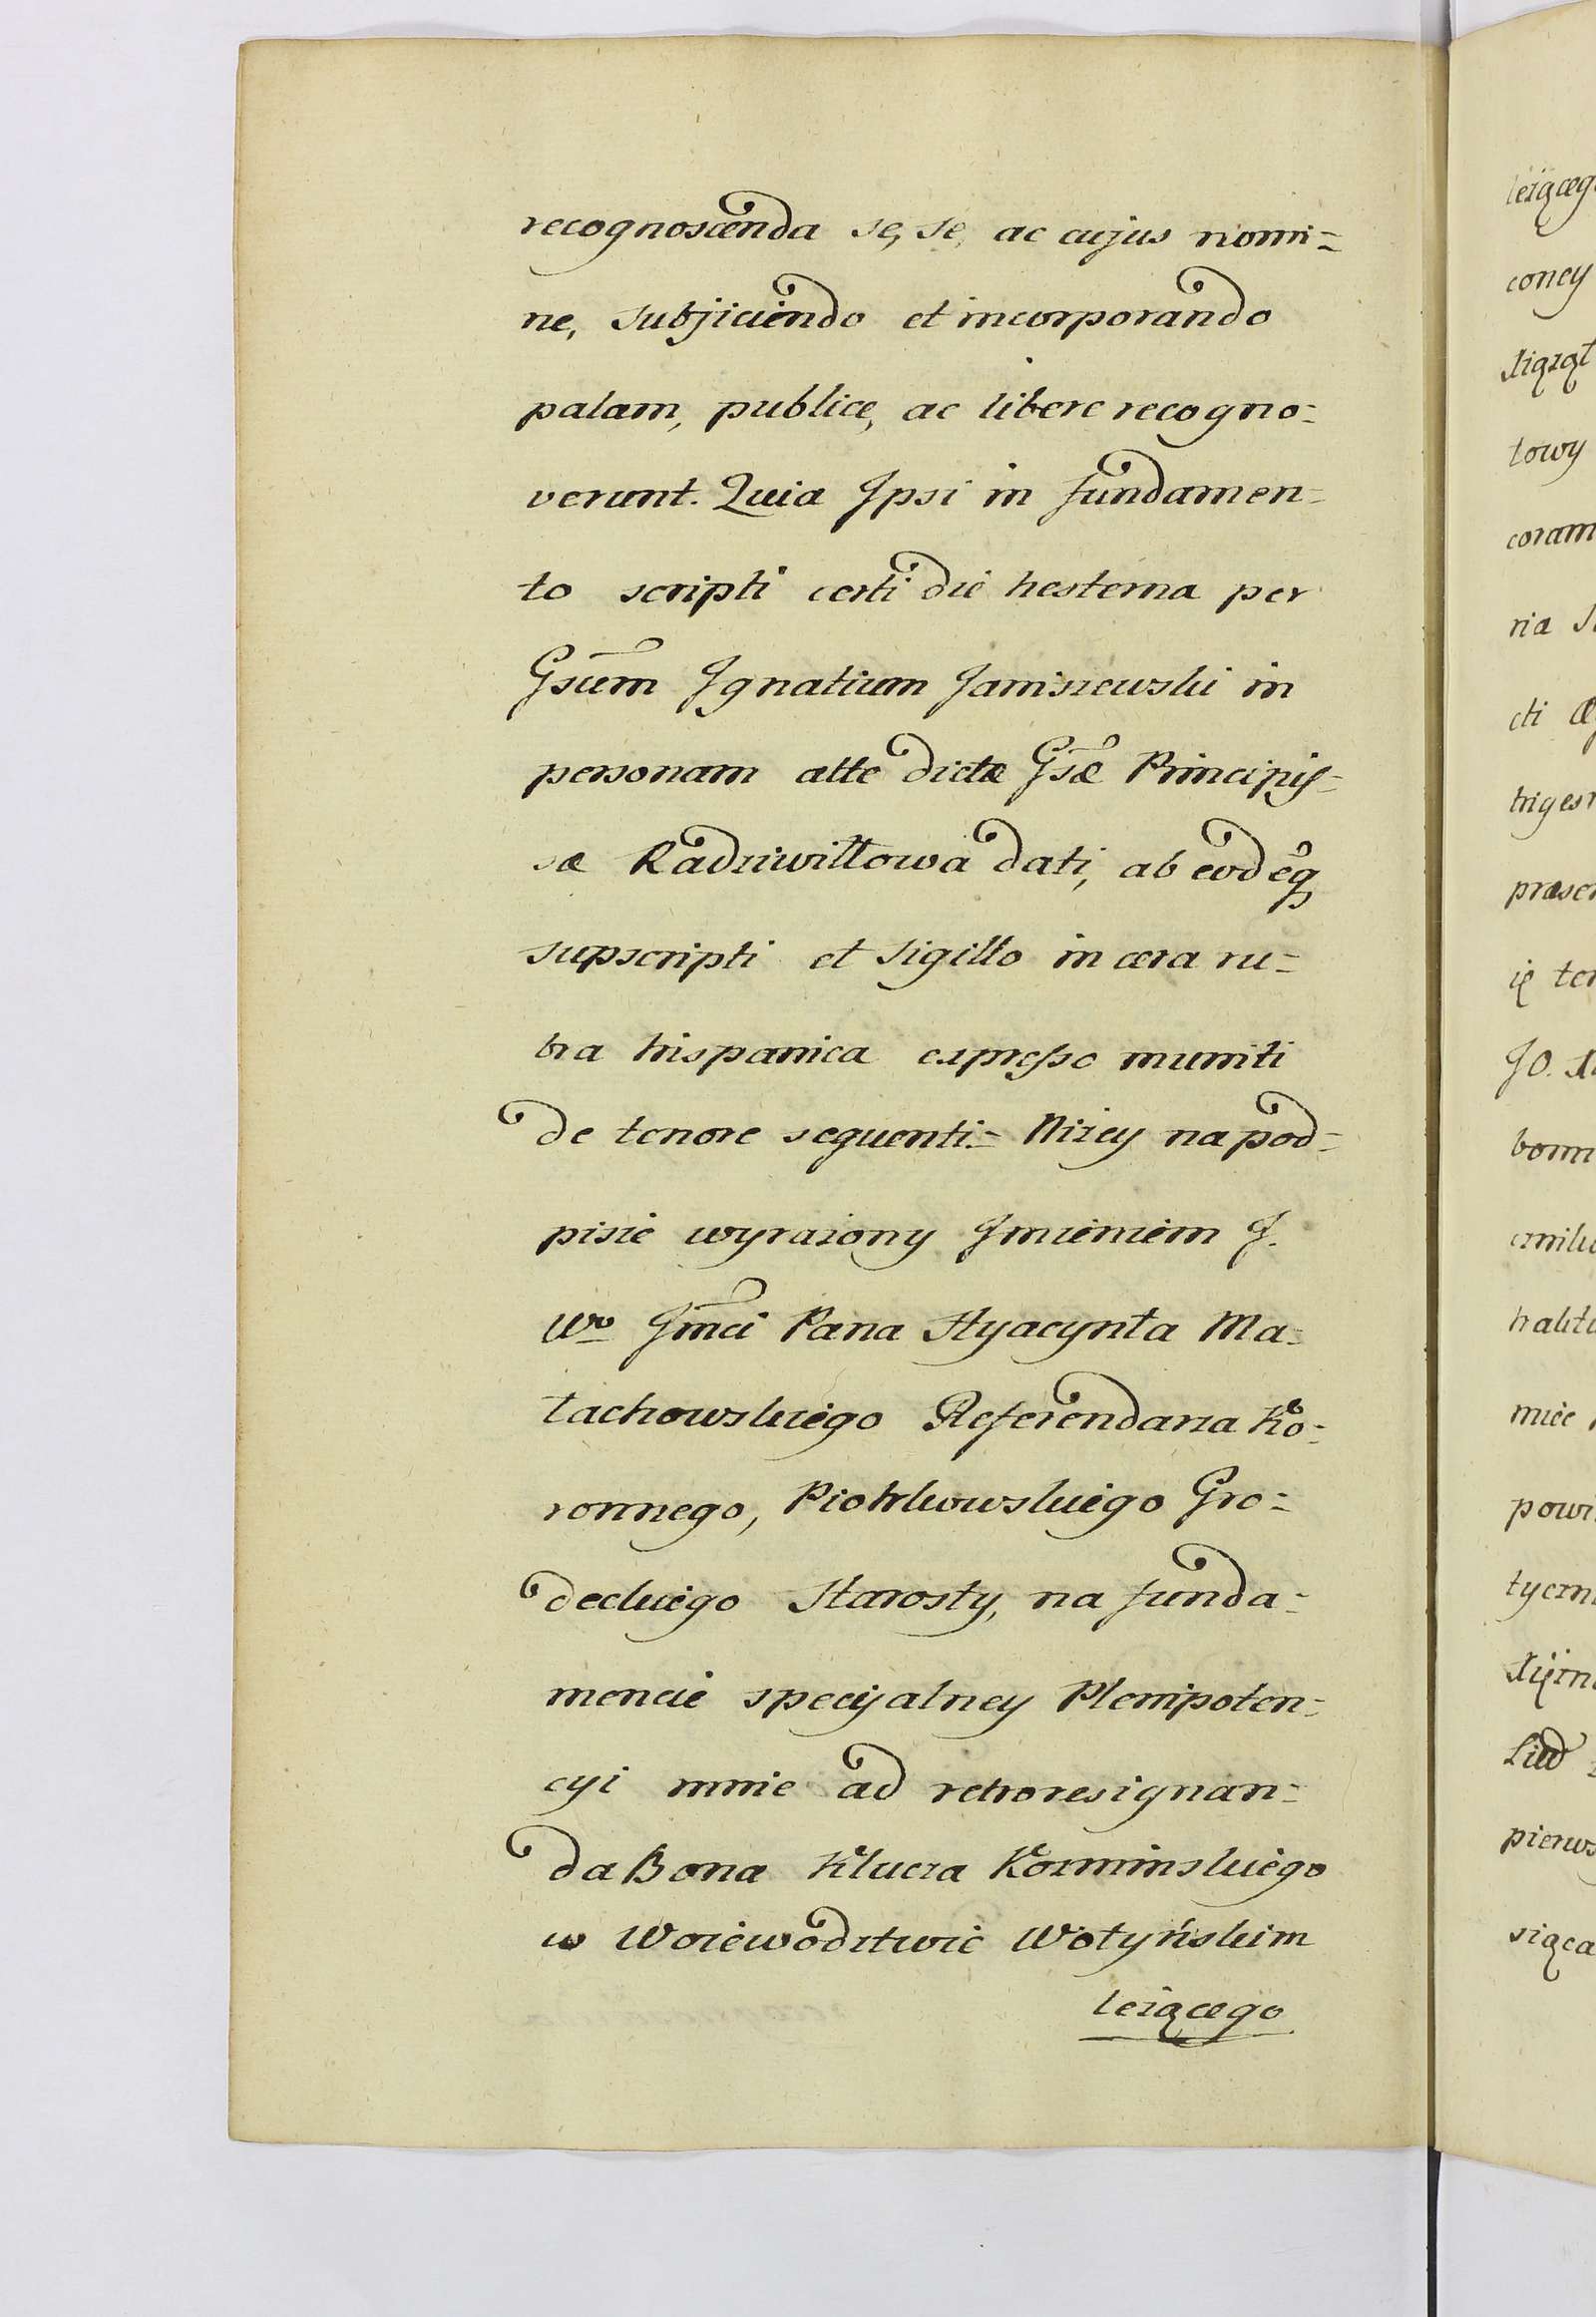 recognoscenda se, se, ac cujus nomi=
ne, subjiciendo et incorporando
palam, publice, ac libere recogno=
verunt. Quia Ipsi in fundamen=
to scripti certi die hesterna per
Gsum Ignatium Janiszewski in
personam alte dictæ Gsæ Principis=
sæ Radziwiłłowa dati, ab eodēq
supscripti et sigillo in cera ru=
bra hispanica expresso muniti
de tenore sequenti= Niżey na pod=
pisie wyrażony Imieniem J.
Wo Jmci Pana Hyacynta Ma=
łachowskiego Referendarza Ko=
ronnego, Piotrkowskiego Gro=
deckiego Starosty, na funda=
mencie specyalney Plenipoten=
cyi mnie ad retroresignan=
da Bona Klucza Kozminskiego
w Woiewodztwie Wołyńskim
leżącego
leżąceg
coney
Xiążąt
towy
coram
ria
cti
triges
præse
ię
JO.
bonn
czniku
trakt
miec
powi
tyczn
Xiężn
Lud
pierws
siąca